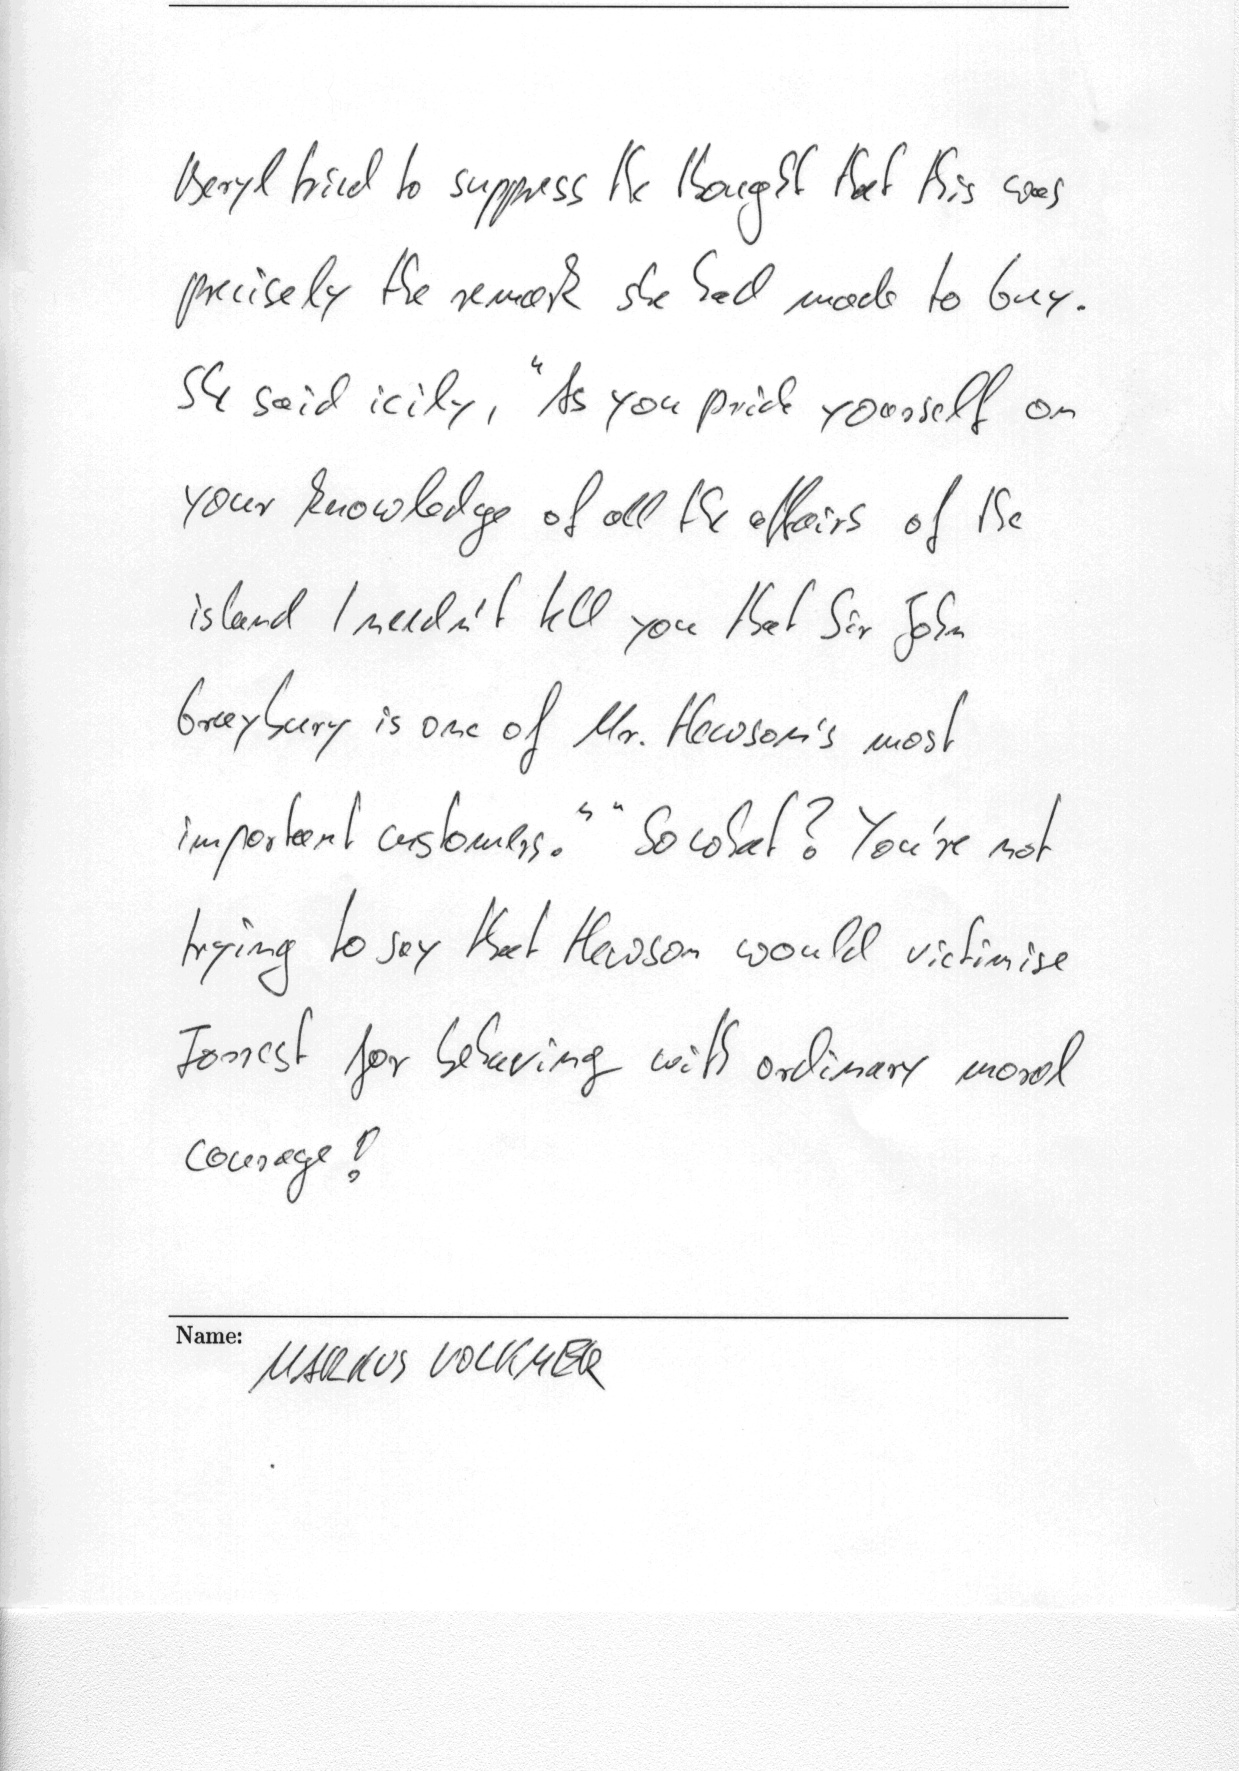 Beryl tried to suppress the thought that this was
precisely the remark she had made to Guy.
She said icily, "As you pride yourself on
your knowledge of all the affairs of the
island I needn't tell you that Sir John
Graybury is one of Mr. Hewson's most
important customers." "So what? You're not
trying to say that Hewson would victimise
Forrest for behaving with ordinary moral
courage?
Name:
MARKUS VOLKMER